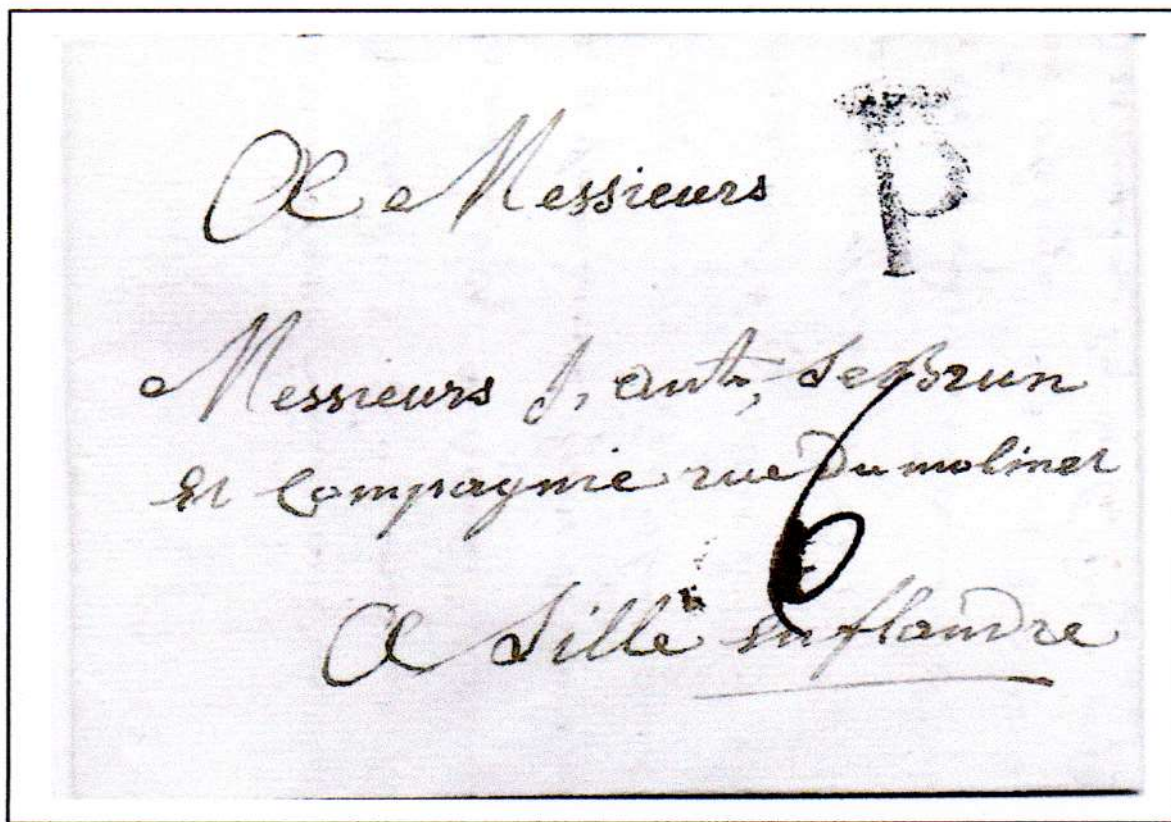 A Messieurs
P
Messieurs J, ant, LeBrun
et Compagnie rue Du molinel
6
A Lille en flandre